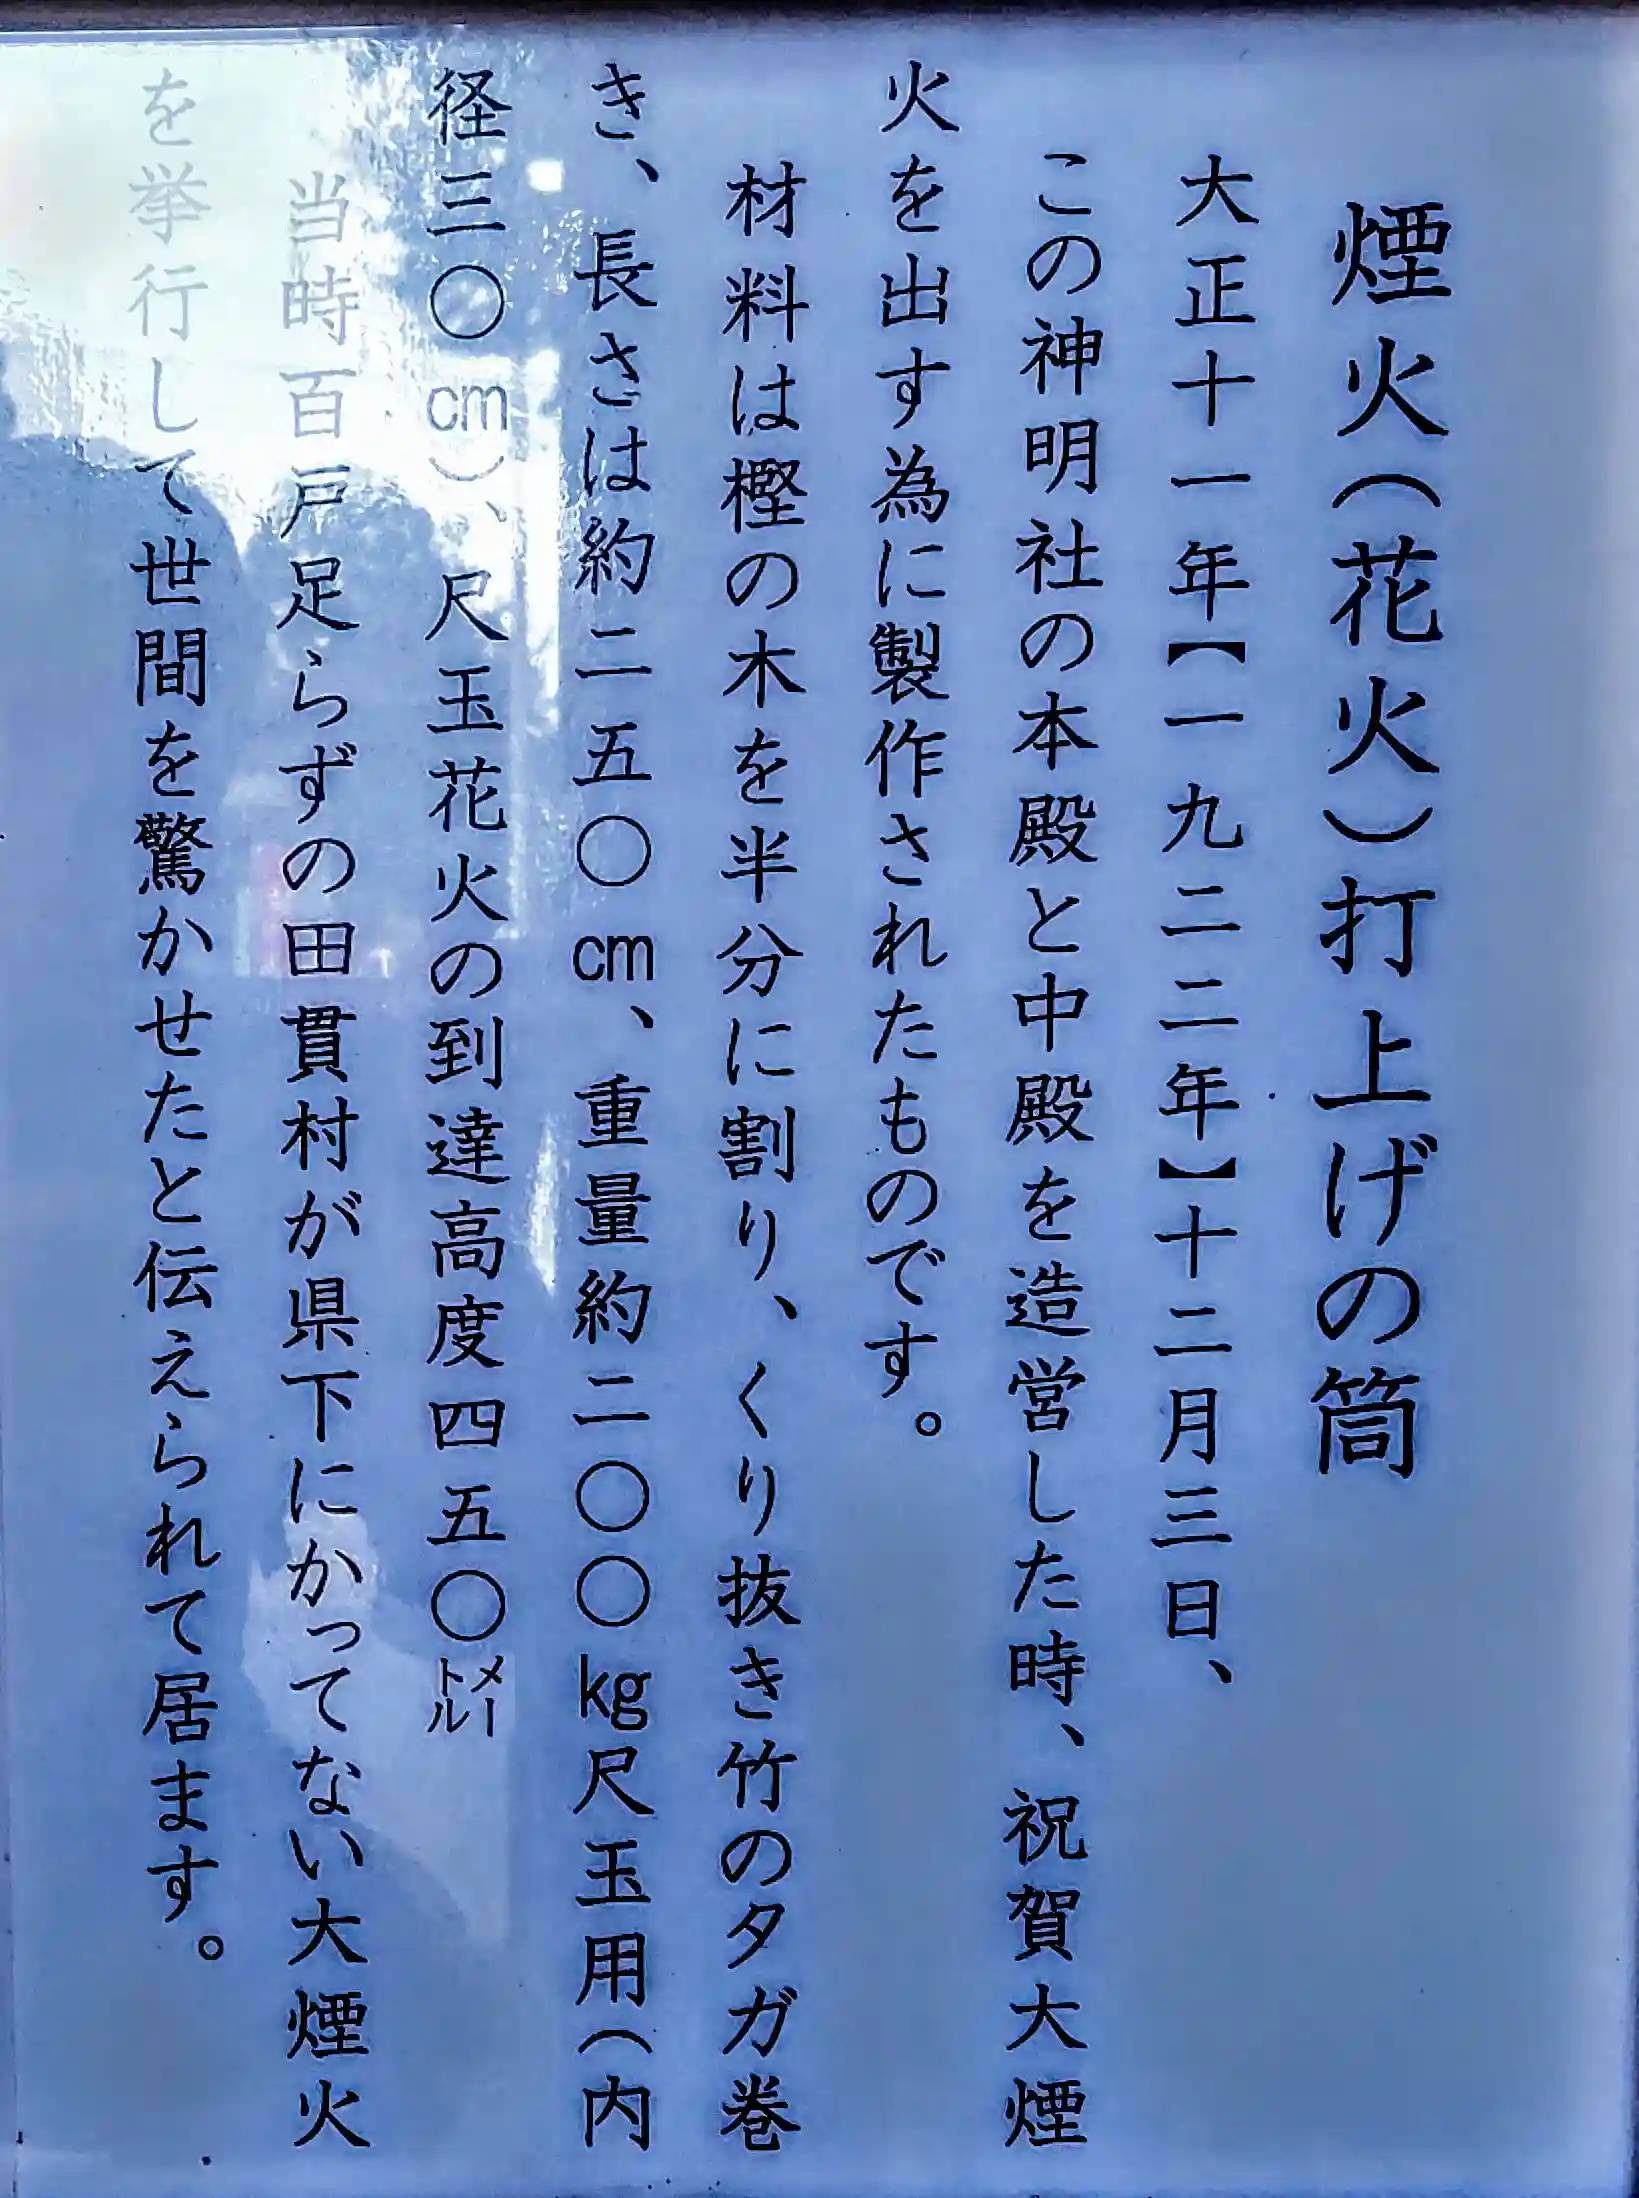 煙火(花火)打上げの筒
大正十一年【一九二二年】十二月三日、
この神明社の本殿と中殿を造営した時、祝賀大煙
火を出す為に製作されたものです。
材料は樫の木を半分に割り、くり抜き竹のタガ巻
き、長さは約二五〇㎝、重量約二〇〇㎏尺玉用(内
径三〇㎝)、尺玉花火の到達高度四五〇㍍
当時百戸足らずの田貫村が県下にかってない大煙火
を挙行して世間を驚かせたと伝えられて居ます。